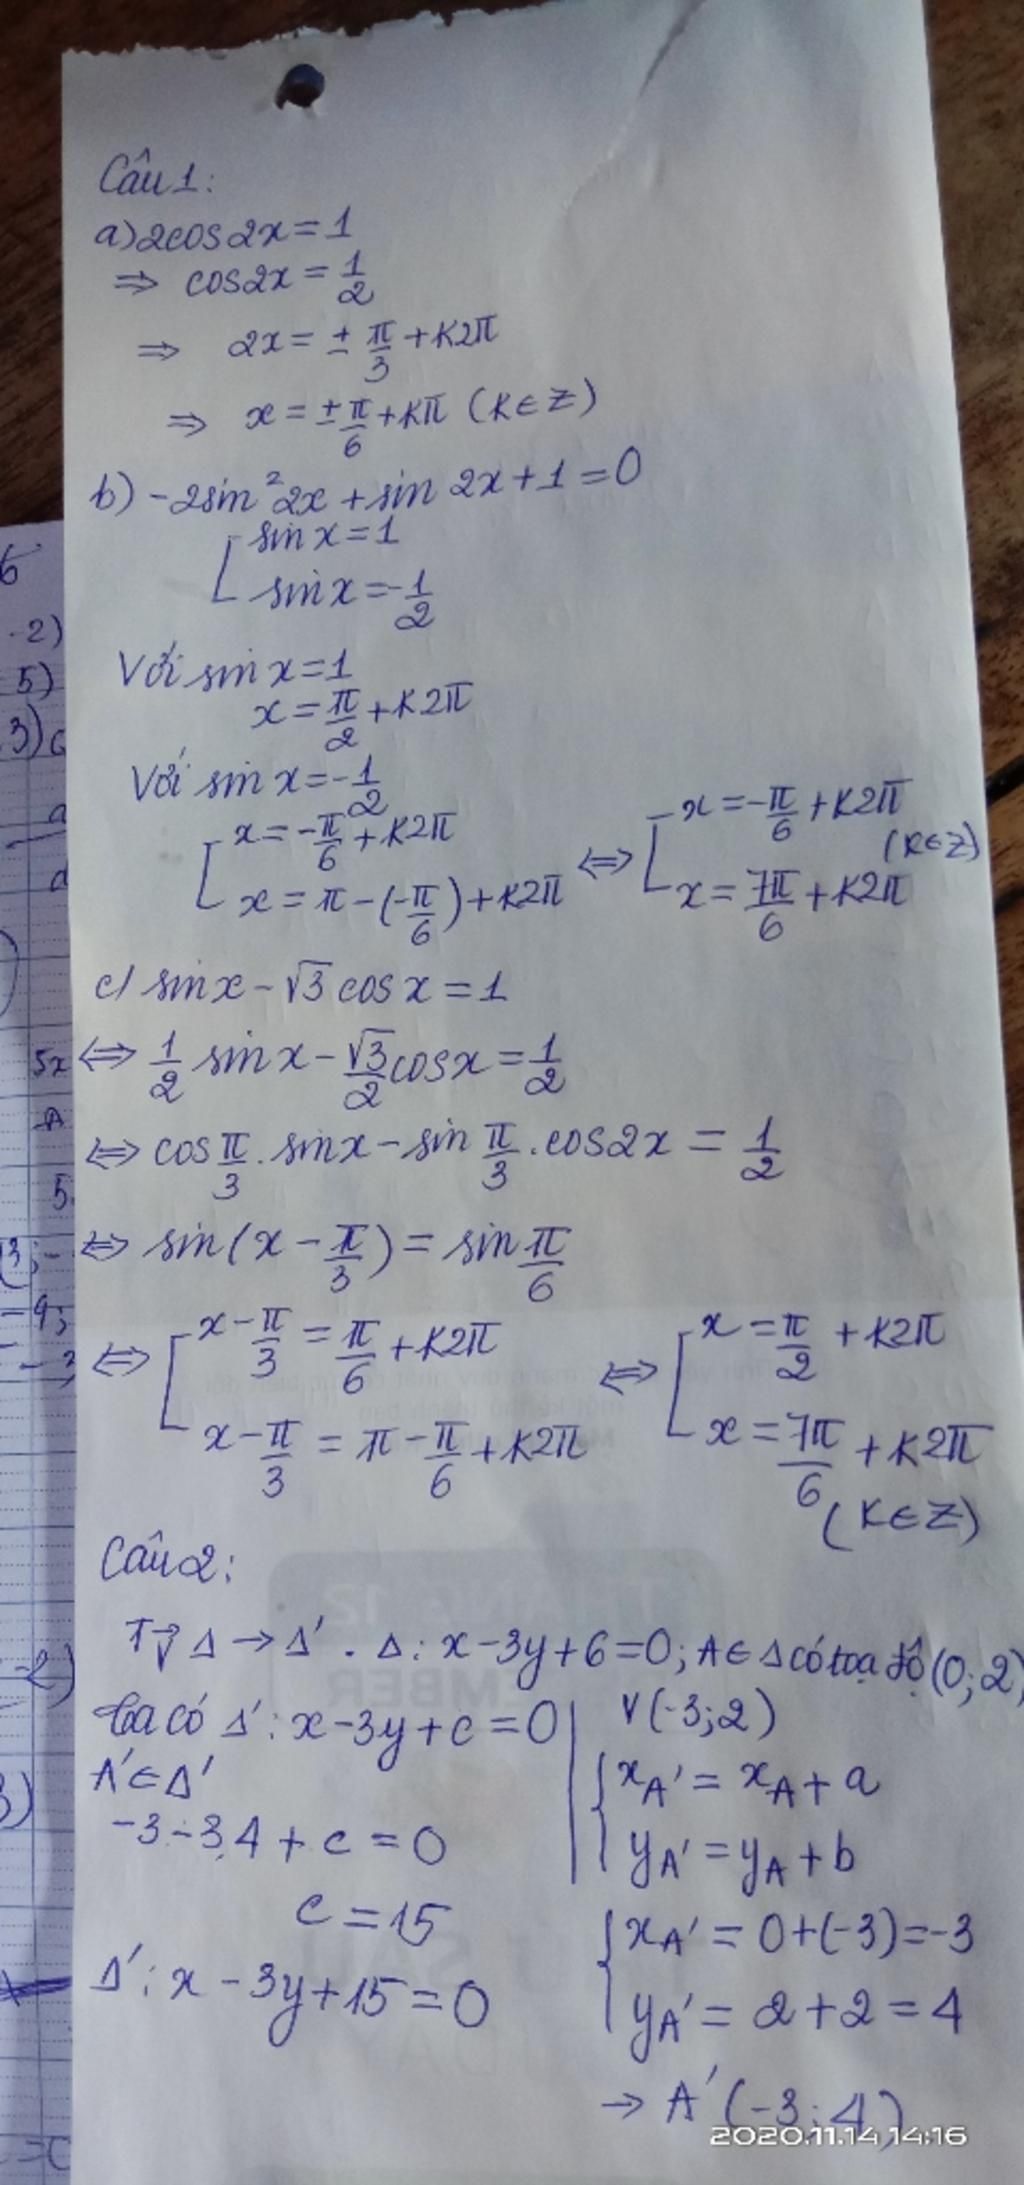 Câu 1:
a) 2cos2x = 1
⇒ cos2x = 1/2
⇒ 2x = ± π/3 + k2π
⇒ x = ± π/6 + kπ (k∈Z)
b) -2sin²2x + sin 2x + 1 = 0
[ sin x = 1
sin x = -1/2
Với sin x = 1
x = π/2 + k2π
Với sin x = -1/2
[ x = -π/6 + k2π
x = π - (-π/6) + k2π
⇔ [ x = -π/6 + k2π
(k∈Z)
x = 7π/6 + k2π
c/ sin x - √3 cos x = 1
⇔ 1/2 sin x - √3/2 cos x = 1/2
⇔ cos π/3 . sin x - sin π/3 . cos2x = 1/2
⇔ sin(x - π/3) = sin π/6
⇔ [ x - π/3 = π/6 + k2π
x - π/3 = π - π/6 + k2π
⇔ [ x = π/2 + k2π
x = 7π/6 + k2π
(k∈Z)
Câu 2:
Tv⃗ Δ → Δ' . Δ: x - 3y + 6 = 0; A∈Δ có toạ độ (0;2)
Ta có Δ': x - 3y + c = 0
A'∈Δ'
-3 - 3.4 + c = 0
c = 15
Δ': x - 3y + 15 = 0
V(-3;2)
{ xA' = xA + a
yA' = yA + b
{ xA' = 0 + (-3) = -3
yA' = 2 + 2 = 4
→ A'(-3;4)
2020.11.14 14:16
6
-2)
5)
3)
a
d
5x
A
5
(3;-
-9;
-3
-2)
3)
=0